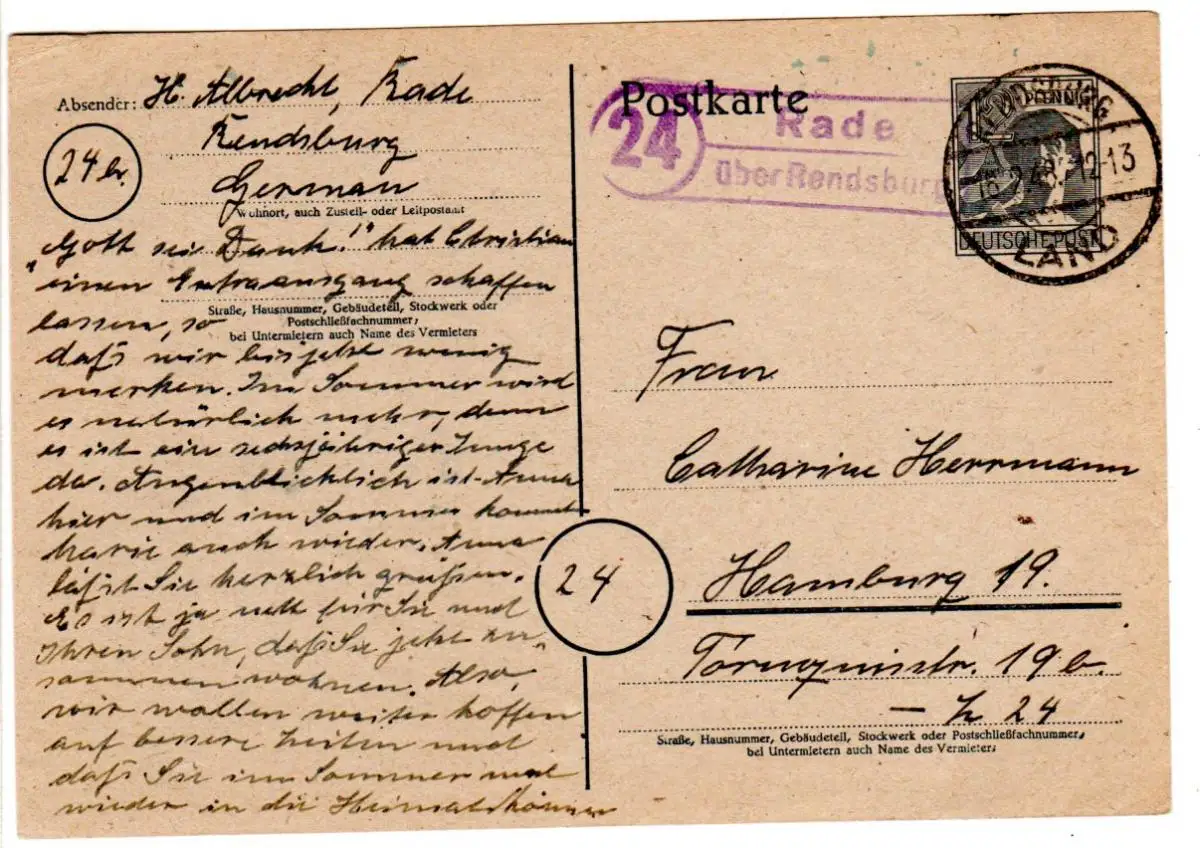 Absender: H. Albrecht, Rade
Rendsburg
24b.
German
Wohnort, auch Zustell- oder Leitpostamt
„Gott sei Dank!" hat Christian
einen Extraausgang schaffen
Straße, Hausnummer, Gebäudeteil, Stockwerk oder
Postschließfachnummer,
bei Untermietern auch Name des Vermieters
lassen, so
daß wir bis jetzt wenig
merken. Im Sommer wird
es natürlich mehr, denn
es ist ein sechsjähriger Junge
da. Augenblicklich ist Anna
hier und im Sommer kommt
Marie auch wieder. Anna
läßt Sie herzlich grüßen.
Es ist ja nett für Sie und
Ihren Sohn, daß Sie jetzt zu„
sammen wohnen. Also,
wir wollen weiter hoffen
auf bessere Zeiten und
daß Sie im Sommer mal
wieder in die Heimat können
Postkarte
24
Rade
über Rendsburg
12 PFENNIG
DEUTSCHE POST
RENDSBURG
48. 12-13
LAND
Frau
Catharine Herrmann
24
Hamburg 19.
Tornquiststr. 19 b.
Straße, Hausnummer, Gebäudeteil, Stockwerk oder Postschließfachnummer,
bei Untermietern auch Name des Vermieters